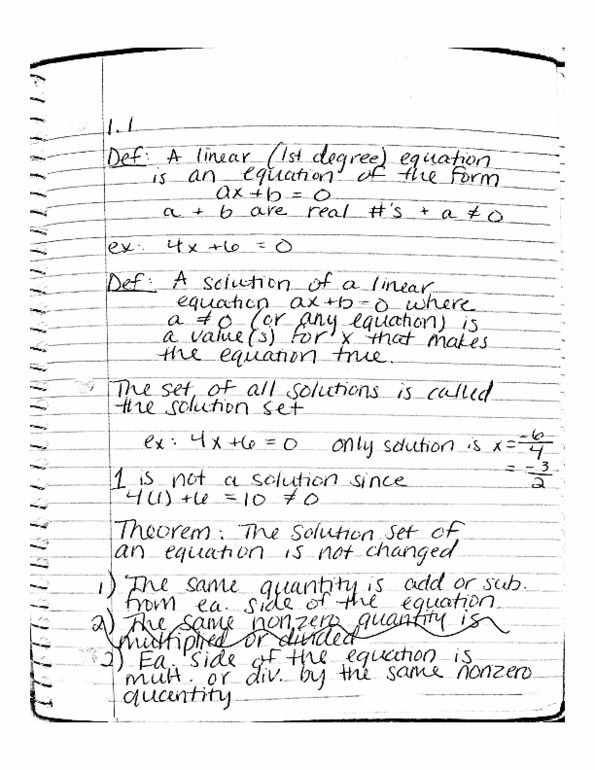 1.1
Def: A linear (1st degree) equation
is an equation of the form
ax + b = 0
a + b are real #'s + a ≠ 0
ex: 4x + 6 = 0
Def: A solution of a linear
equation ax + b = 0 where
a ≠ 0 (or any equation) is
a value(s) for x that makes
the equation true.
The set of all solutions is called
the solution set
ex: 4x + 6 = 0 only solution is x = -6/4
= -3/2
1 is not a solution since
4(1) + 6 = 10 ≠ 0
Theorem: The solution set of
an equation is not changed
1) The same quantity is add or sub.
from ea. side of the equation.
2) The same nonzero quantity is
multiplied or divided
2) Ea. side of the equation is
mult. or div. by the same nonzero
quantity